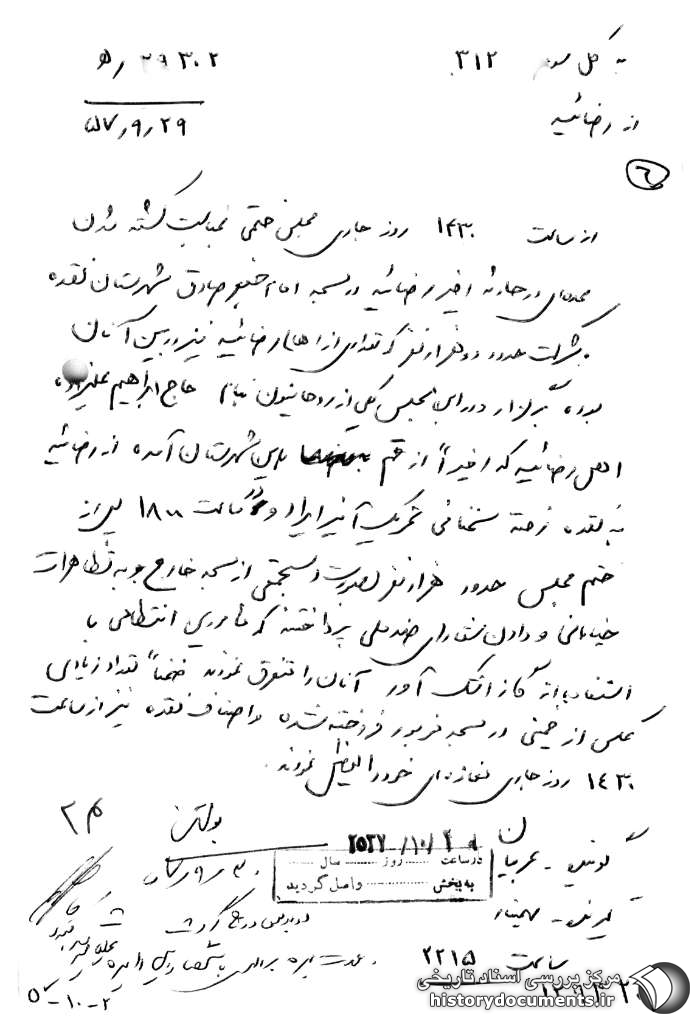 به کل سوم ۳۱۲
۲۹۳۰۲ / ه
از رضائیه
۵۷/۹/۲۹
از ساعت ۱۴۳۰ روز جاری مجلس ختمی بمناسبت کشته شدن
عده‌ای در حادثه اخیر رضائیه در مسجد امام جعفر صادق شهرستان نقده
بشرکت حدود دو هزار نفر که تعدادی از اهالی رضائیه نیز در بین آنان
بوده برگزار در این مجلس یکی از روحانیون بنام حاج ابراهیم
اهل رضائیه که اخیراً از قم باین شهرستان آمده از رضائیه
به نقده رفته سخنانی تحریک آمیز ایراد و در ساعت ۱۸۰۰ پس از
ختم مجلس حدود هزار نفر بصورت دستجمعی از مسجد خارج و به تظاهرات
خیابانی و دادن شعارهای ضد ملی پرداختند که مامورین انتظامی با
استفاده از گاز اشک آور آنان را متفرق نمودند ضمناً تعداد زیادی
عکس از خمینی در مسجد مزبور فروخته شده و اصناف نقده نیز از ساعت
۱۴۳۰ روز جاری مغازه‌های خود را تعطیل نمودند.
گوینده -
بولتن
گیرنده -
ساعت ۲۲۱۵
۲۵۳۷/۱۰/۲
در ساعت ........ روز ........ سال ........
به بخش ............ واصل گردید
در بولتن درج گردید
۵۷-۱۰-۲
مرکز بررسی اسناد تاریخی
historydocuments.ir